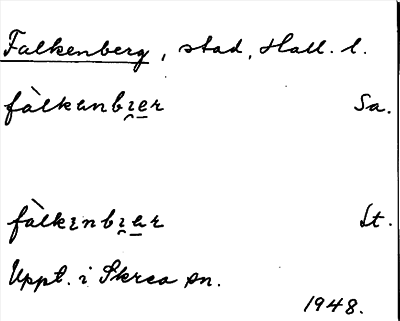 Falkenberg, stad, Hall. l.
fàlkanbı̯er Sa.
fàlkınbı̯ar St.
Uppt. i Skrea sn.
1948.